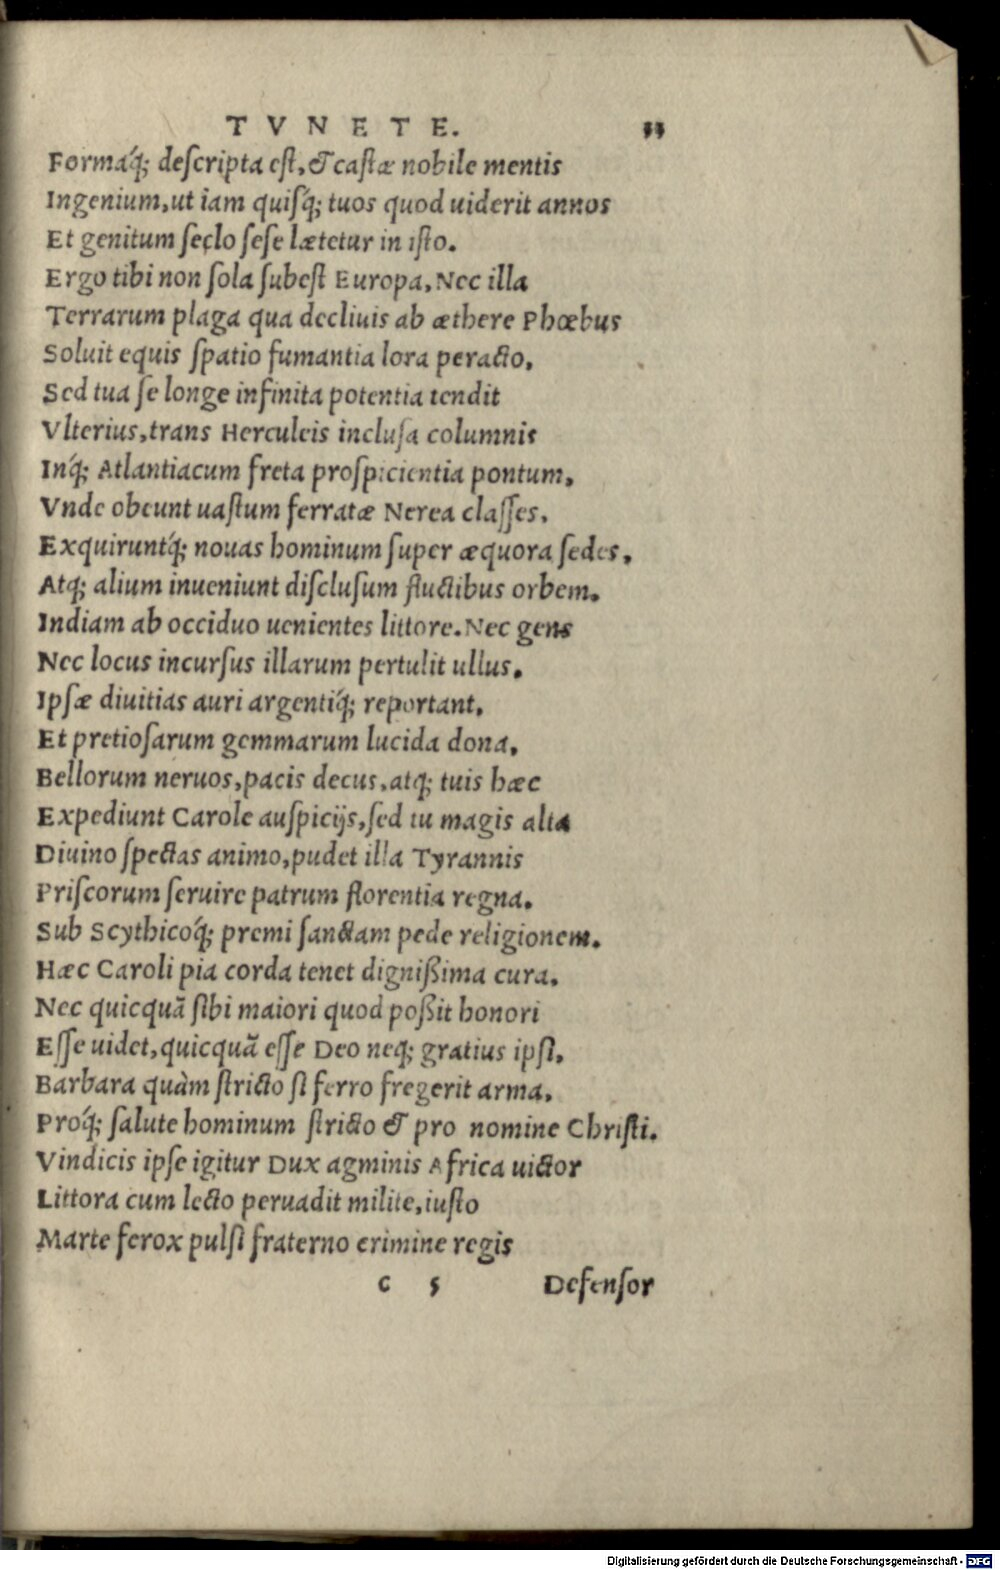 TVNETE. 33
Formaq́; deſcripta eſt, & caſtæ nobile mentis
Ingenium, ut iam quiſq́; tuos quod uiderit annos
Et genitum ſeclo ſeſe lætetur in iſto.
Ergo tibi non ſola ſubeſt Europa, Nec illa
Terrarum plaga qua decliuis ab æthere Phœbus
Soluit equis ſpatio fumantia lora peracto,
Sed tua ſe longe infinita potentia tendit
Vlterius, trans Herculeis incluſa columnis
Inq́; Atlantiacum freta proſpicientia pontum,
Vnde obeunt uaſtum ferratæ Nerea claſſes,
Exquiruntq́; nouas hominum ſuper æquora ſedes,
Atq; alium inueniunt diſcluſum fluctibus orbem.
Indiam ab occiduo uenientes littore. Nec gens
Nec locus incurſus illarum pertulit ullus.
Ipſæ diuitias auri argentiq́; reportant,
Et pretioſarum gemmarum lucida dona,
Bellorum neruos, pacis decus, atq; tuis hæc
Expediunt Carole auſpicijs, ſed tu magis alta
Diuino ſpectas animo, pudet illa Tyrannis
Priſcorum ſeruire patrum florentia regna.
Sub Scythicoq́; premi ſanctam pede religionem.
Hæc Caroli pia corda tenet digniſsima cura.
Nec quicquã ſibi maiori quod poſsit honori
Eſſe uidet, quicquã eſſe Deo neq; gratius ipſi,
Barbara quàm ſtricto ſi ferro fregerit arma,
Proq́; ſalute hominum ſtricto & pro nomine Chriſti.
Vindicis ipſe igitur Dux agminis Africa uictor
Littora cum lecto peruadit milite, iuſto
Marte ferox pulſi fraterno crimine regis
C 5 Defenſor
Digitalisierung gefördert durch die Deutsche Forschungsgemeinschaft - DFG